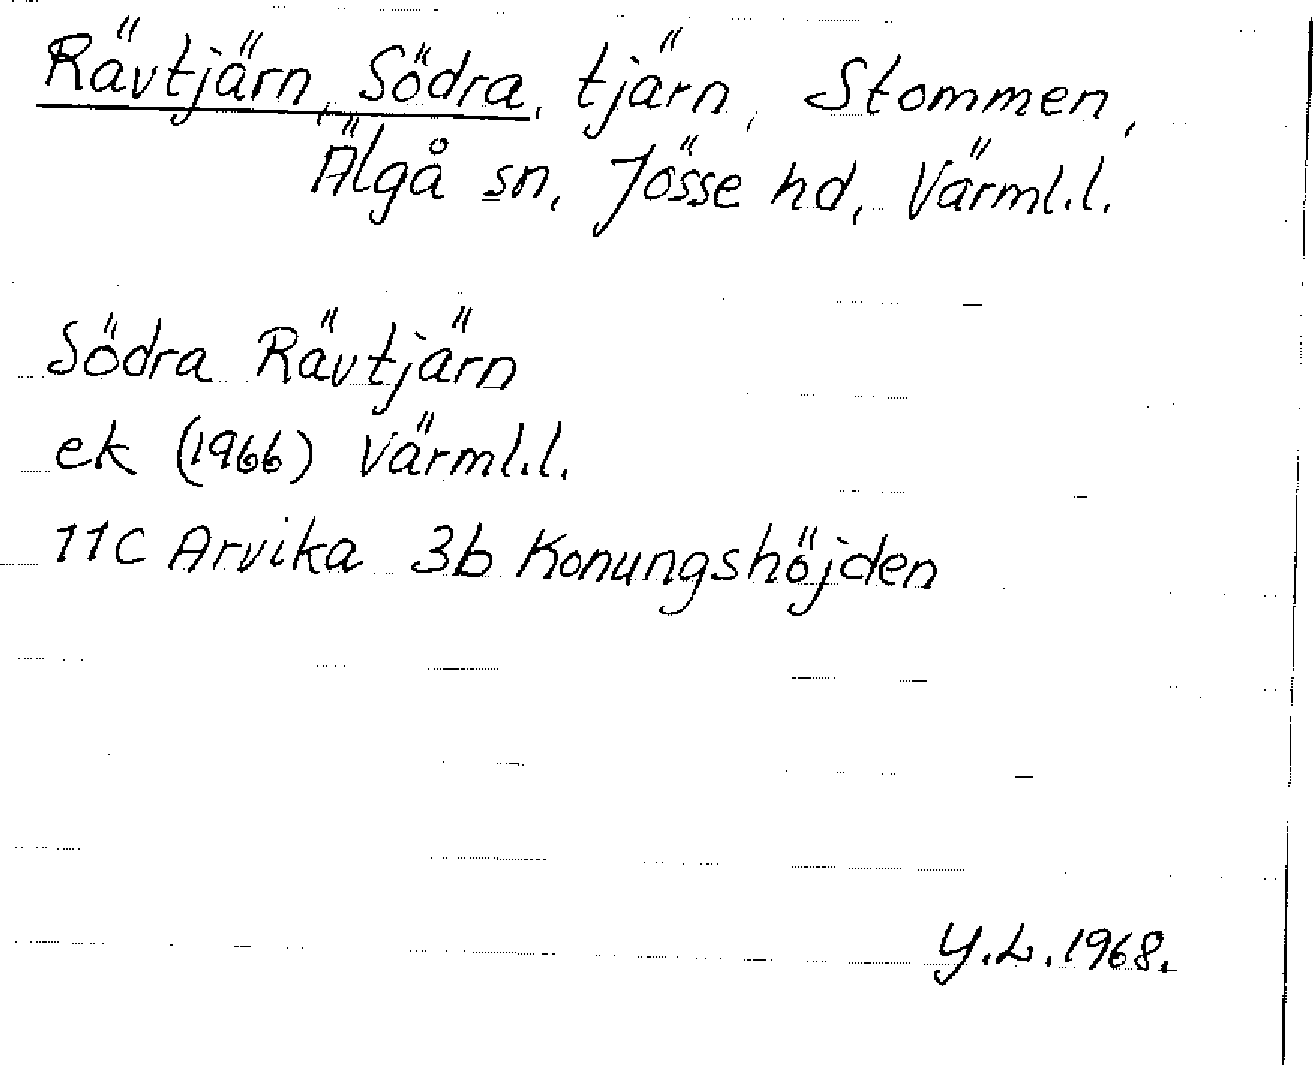 Rävtjärn, Södra, tjärn, Stommen,
Älgå sn, Jösse hd, Värml.l.
Södra Rävtjärn
ek (1966) Värml.l.
11C Arvika 3b Konungshöjden
Y.L. 1968.